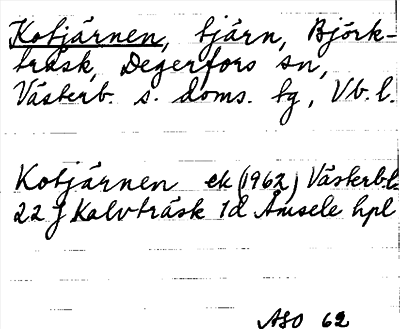 Kotjärnen, tjärn, Björk-
träsk, Degerfors sn,
Västerb. s. doms. tg, Vb. l.
Kotjärnen ek (1962) Västerb.l.
22 J Kalvträsk 1d Åmsele hpl
ASO 62